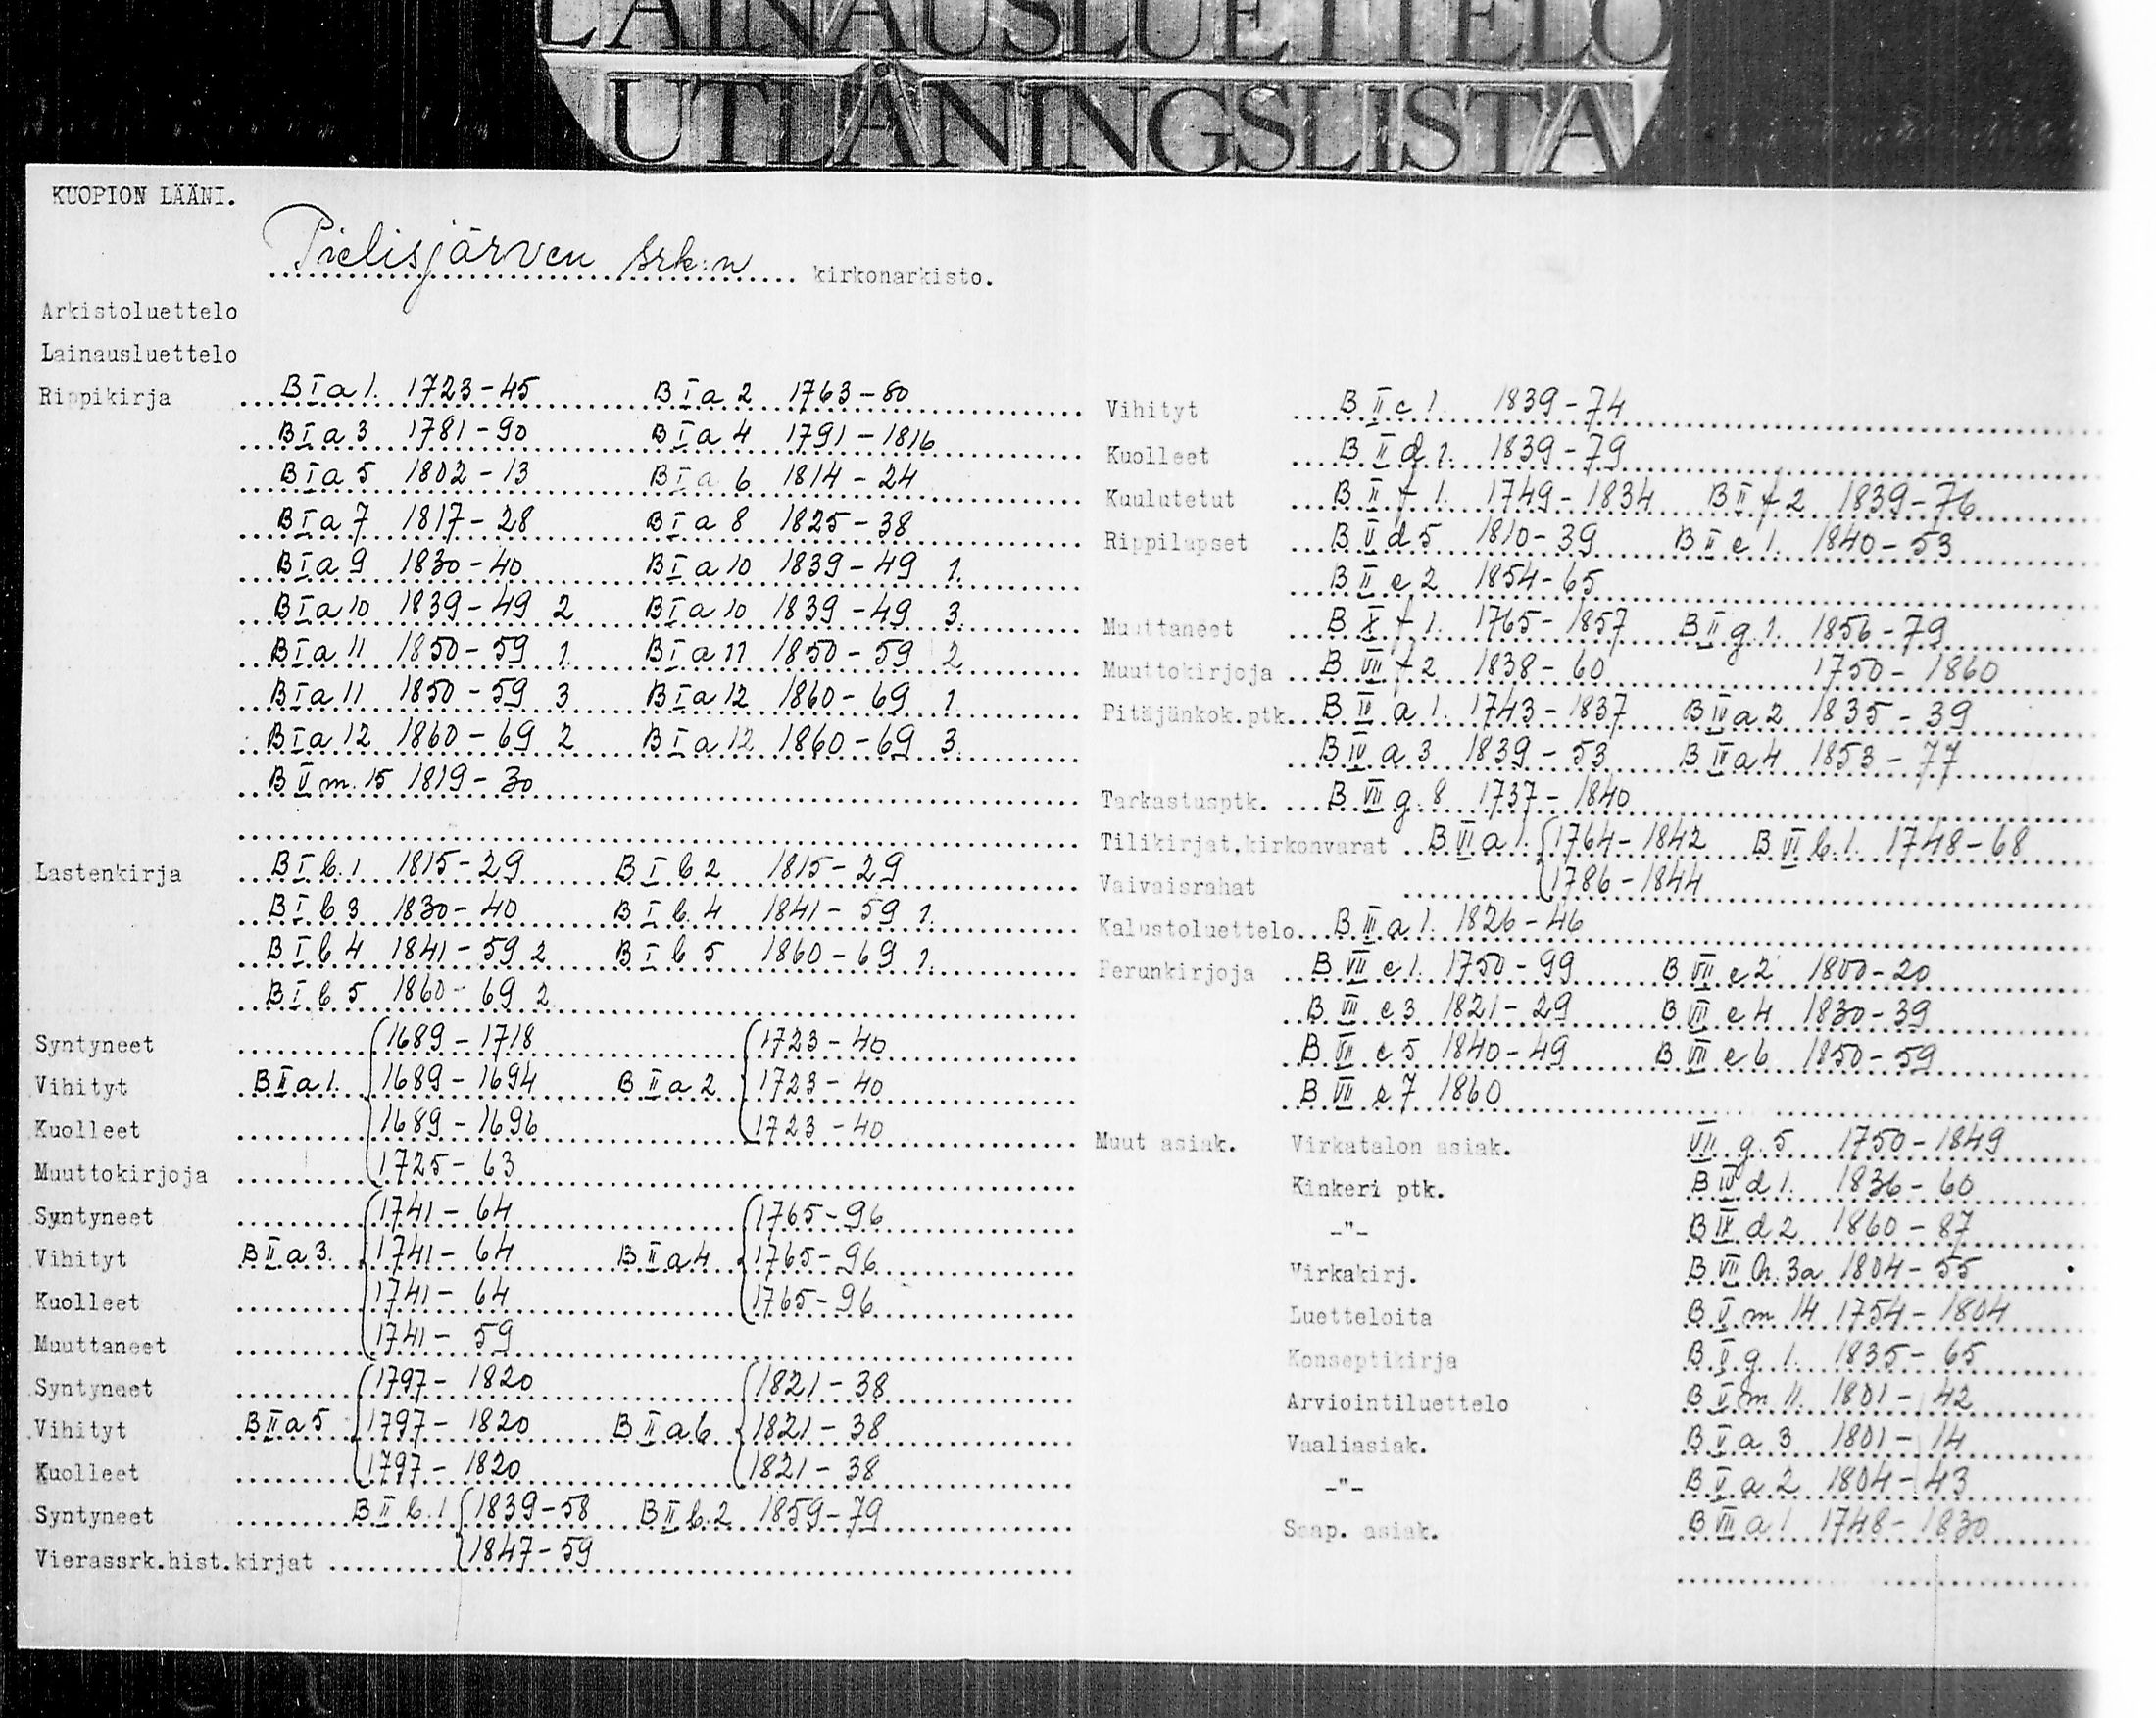 LAINAUSLUETTELO
UTLÅNINGSLISTA
KUOPION LÄÄNI.
Pielisjärven srk:n kirkonarkisto.
Arkistoluettelo
Lainausluettelo
Rippikirja B I a 1. 1723-45 B I a 2 1763-80
B I a 3 1781-90 B I a 4 1791-1816
B I a 5 1802-13 B I a 6 1814-24
B I a 7 1817-28 B I a 8 1825-38
B I a 9 1830-40 B I a 10 1839-49 1.
B I a 10 1839-49 2 B I a 10 1839-49 3.
B I a 11 1850-59 1. B I a 11 1850-59 2
B I a 11 1850-59 3 B I a 12 1860-69 1.
B I a 12 1860-69 2 B I a 12 1860-69 3.
B V m. 15 1819-30
Lastenkirja B I b. 1 1815-29 B I b 2 1815-29
B I b 3 1830-40 B I b. 4 1841-59 1.
B I b 4 1841-59 2 B I b 5 1860-69 1.
B I b. 5 1860-69 2.
Syntyneet 1689-1718 1723-40
Vihityt B II a 1. 1689-1694 B II a 2 1723-40
Kuolleet 1689-1696 1723-40
Muuttokirjoja 1725-63
Syntyneet 1741-64 1765-96
Vihityt B II a 3. 1741-64 B II a 4 1765-96
Kuolleet 1741-64 1765-96
Muuttaneet 1741-59
Syntyneet 1797-1820 1821-38
Vihityt B II a 5 1797-1820 B II a 6 1821-38
Kuolleet 1797-1820 1821-38
Syntyneet B II b. 1 1839-58 B II b. 2 1859-79
Vierassrk.hist.kirjat 1847-59
Vihityt B II c 1. 1839-74
Kuolleet B II d 1. 1839-79
Kuulutetut B II f 1. 1749-1834 B II f 2 1839-76
Rippilapset B V d 5 1810-39 B II e 1. 1840-53
B II e 2 1854-65
Muuttaneet B X f 1. 1765-1857 B II g. 1. 1856-79
Muuttokirjoja B VII f 2 1838-60 1750-1860
Pitäjänkok.ptk. B IV a 1. 1743-1837 B IV a 2 1835-39
B IV a 3 1839-53 B IV a 4 1853-77
Tarkastusptk. B VII g. 8 1737-1840
Tilikirjat,kirkonvarat B VI a 1. 1764-1842 B VI b. 1. 1748-68
Vaivaisrahat 1786-1844
Kalustoluettelo B III a 1. 1826-46
Perunkirjoja B VII e 1. 1750-99 B VII e 2 1800-20
B VII e 3 1821-29 B VII e 4 1830-39
B VII e 5 1840-49 B VII e 6 1850-59
B VII e 7 1860
Muut asiak. Virkatalon asiak. VII g. 5 1750-1849
Kinkeri ptk. B IV d 1. 1836-60
-"- B IV d 2 1860-87
Virkakirj. B VII h. 3a 1804-55
Luetteloita B V m 14 1754-1804
Konseptikirja B V g 1. 1835-65
Arviointiluettelo B V m 11. 1801-42
Vaaliasiak. B V a 3 1801-14
-"- B V a 2 1804-43
Saap. asiak. B VII a 1 1748-1830